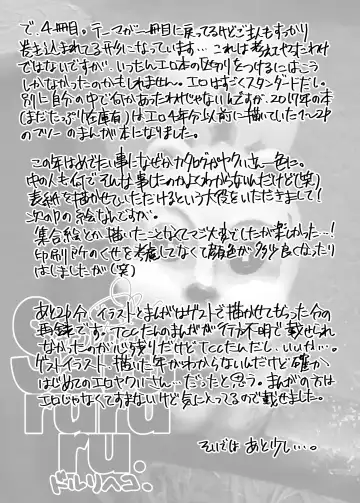 で、4冊目。テーマが一冊目に戻ってるけどごまんもすっかり
巻き込まれてる形になっています…これは考えてたわけ
ではないですが、いったんエロ本の区切りをつけるにはこう
しかなかったのかもしれません。エロはすごくスタンダードだし。
別に自分の中で何かあったわけじゃないんですが、2017年の本
(まだたっぷり在庫有)はエロ4年分以前に描いていた1〜2P
のフリーのまんが本になりました。
この年はめでたい事になぜかカタログがヤクいさん一色に。
中の人も何でそんな事したのかよくわからないんだけど(笑)
表紙を描かせていただけるという大役をいただきまして!
次のりの絵なんですが。
集合絵とか描いたことなくてマジ大変でしたが楽しかった…!
印刷所のくせを考慮してなくて顔色が多少良くなったり
はしましたが(笑)
あと2P分、イラストとまんがはゲストで描かせてもらった分の
再録です。Tccたんのまんがが行方不明で載せられ
なかったのが心残りだけどTccたんだし、いいか…。
ゲストイラスト、描いた年がわからないんだけど確か、
はじめてのエロヤクいさん…だったと思う。まんがの方は
エロじゃなくてすまないけど気に入ってるので載せました。
それでは あと少し…。
ru.
ドルリヘコ。